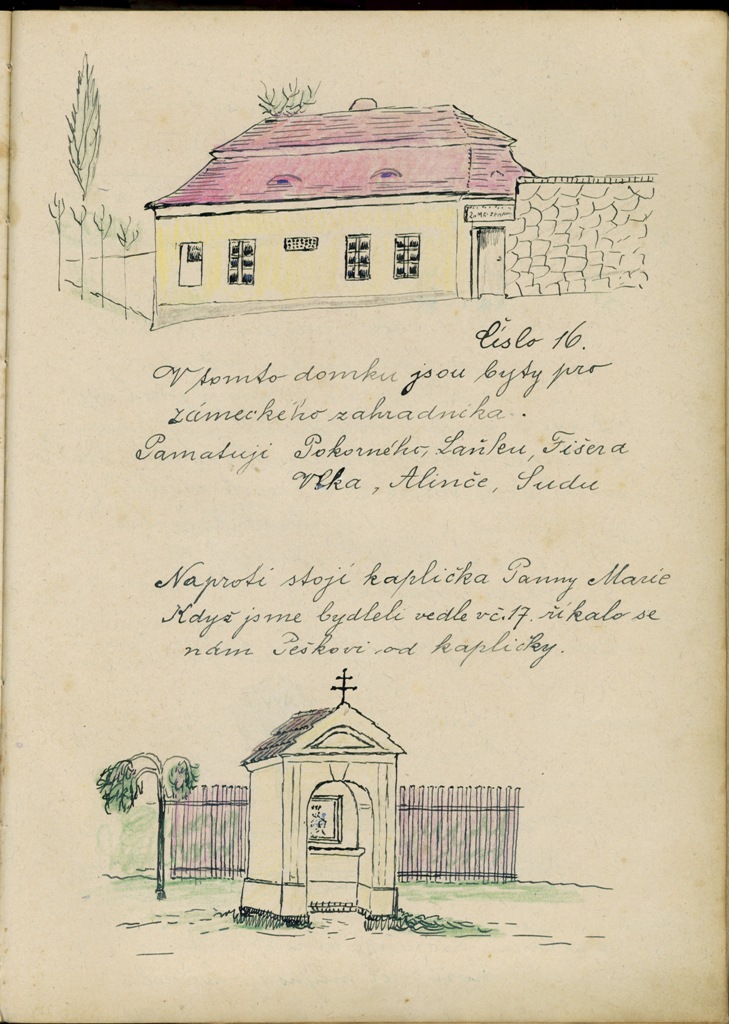 Číslo 16.
V tomto domku jsou byty pro
zámeckého zahradníka.
Pamatuji Pokorného, Laňku, Fišera
Vlka, Alinče, Sudu
Naproti stojí kaplička Panny Marie
Když jsme bydleli vedle v č.17. říkalo se
nám Peškovi od kapličky.